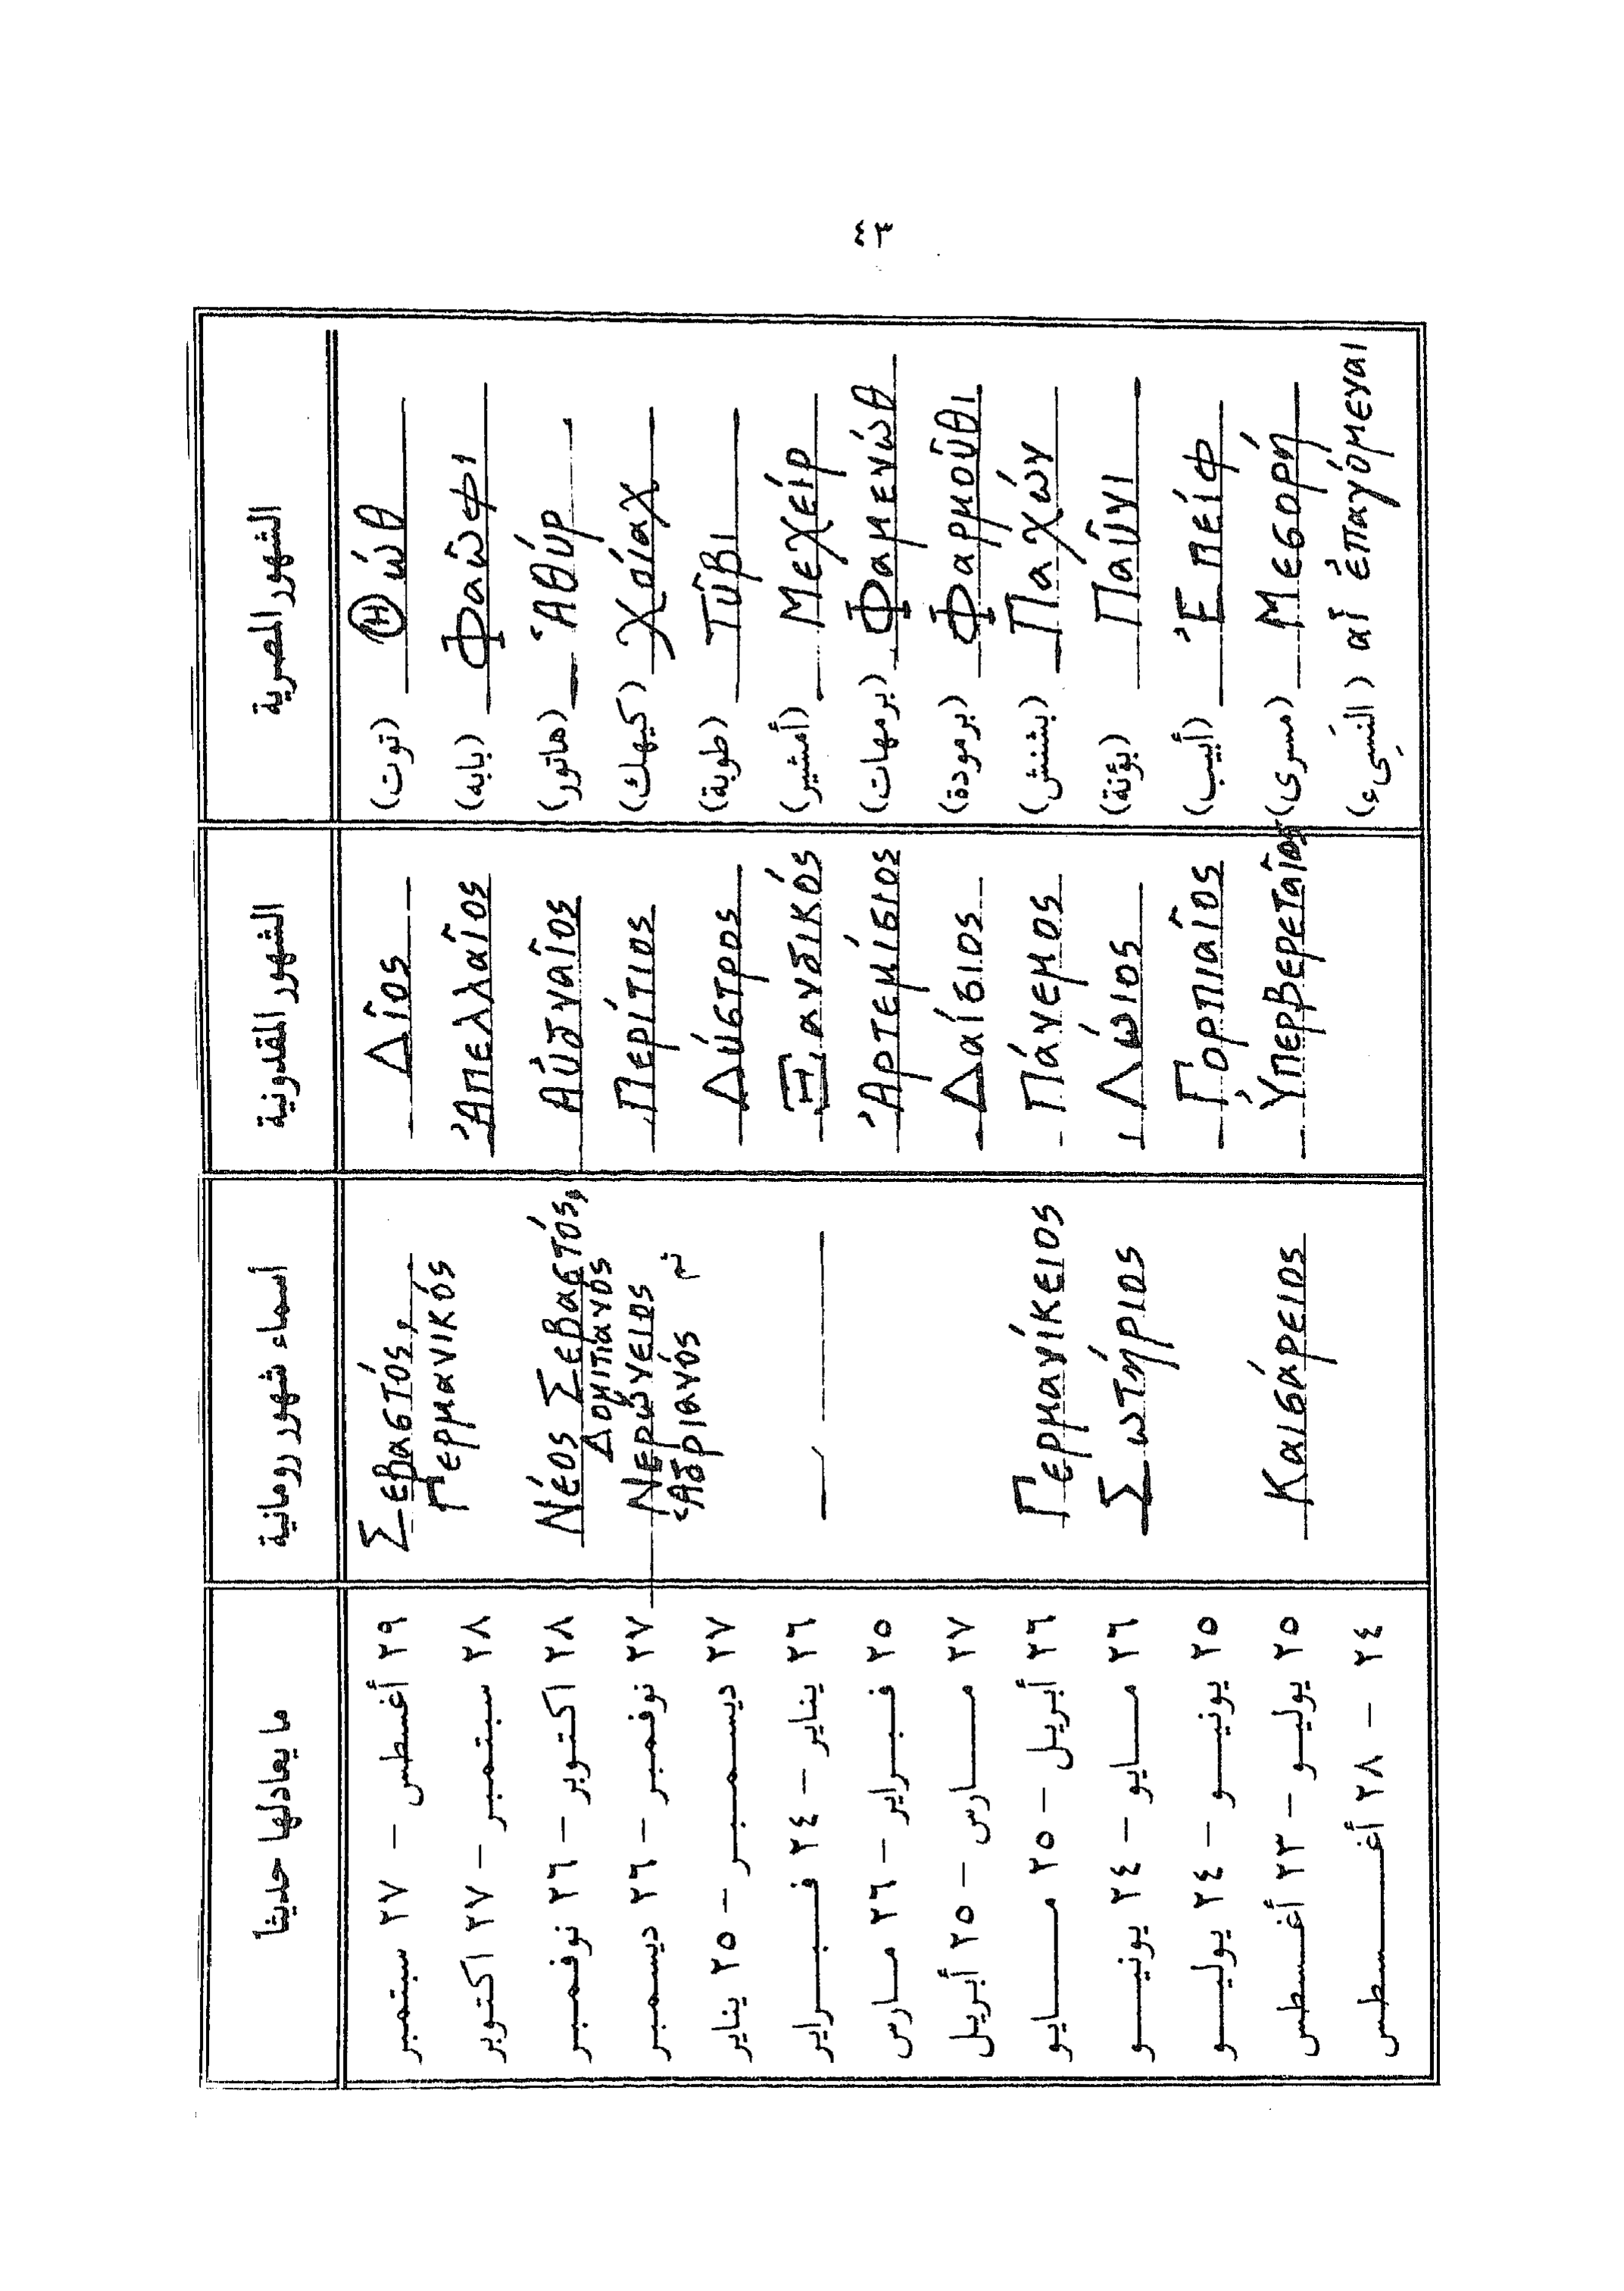 ٤٣
الشهور المصرية | الشهور المقدونية | أسماء شهور رومانية | ما يعادلها حديثاً
(توت) Θώθ | Δῖος | Σεβαστός, Γερμανικός | ٢٩ أغسطس – ٢٧ سبتمبر
(بابه) Φαῶφι | Ἀπελλαῖος | ٢٨ سبتمبر – ٢٧ اكتوبر
(هاتور) Ἁθύρ | Αὐδναῖος | Νέος Σεβαστός, Δομιτιανός | ٢٨ اكتوبر – ٢٦ نوفمبر
(كيهك) Χοίαχ | Περίτιος | Νερώνειος ثم Ἁδριανός | ٢٧ نوفمبر – ٢٦ ديسمبر
(طوبة) Τῦβι | Δύστρος | ٢٧ ديسمبر – ٢٥ يناير
(أمشير) Μεχείρ | Ξανδικός | ٢٦ يناير – ٢٤ فبراير
(برمهات) Φαμενώθ | Ἀρτεμίσιος | ٢٥ فبراير – ٢٦ مارس
(برمودة) Φαρμοῦθι | Δαίσιος | ٢٧ مارس – ٢٥ أبريل
(بشنش) Παχών | Πάνεμος | Γερμανίκειος | ٢٦ أبريل – ٢٥ مايو
(بؤنة) Παῦνι | Λώιος | Σωτήριος | ٢٦ مايو – ٢٤ يونيو
(أبيب) Ἐπείφ | Γορπιαῖος | ٢٥ يونيو – ٢٤ يوليو
(مسرى) Μεσορή | Ὑπερβερεταῖος | Καισάρειος | ٢٥ يوليو – ٢٣ أغسطس
(النَسِىء) αἱ ἐπαγόμεναι | ٢٤ – ٢٨ أغسطس